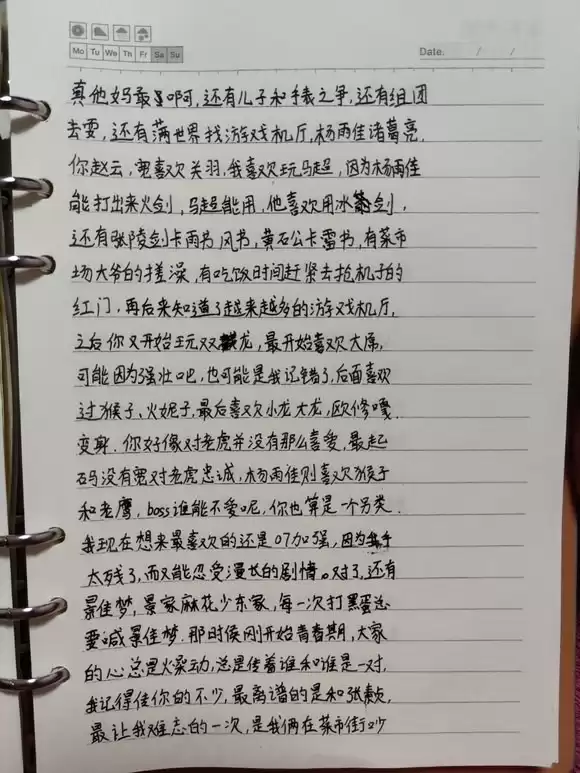 Mo Tu We Th Fr Sa Su
Date. / /
真他妈敢啊,还有儿子和手表之争,还有组团
去耍,还有满世界找游戏机厅,杨雨佳诸葛亮,
你赵云,宽喜欢关羽,我喜欢玩马超,因为杨雨佳
能打出来火剑,马超能用,他喜欢用冰剑,
还有张陵剑卡雨书,风书,黄石公卡雷书,有菜市
场大爷的搓澡,有吃饭时间赶紧去抢机子的
红门,再后来知道了越来越多的游戏机厅,
之后你又开始玩双龙,最开始喜欢大席,
可能因为强壮吧,也可能是我记错了,后面喜欢
过猴子、火妮子,最后喜欢小龙大龙,欧修嘎,
变身,你好像对老虎并没有那么喜爱,最起
码没有宽对老虎忠诚,杨雨佳则喜欢猴子
和老鹰,boss谁能不爱呢,你也算是一个另类.
我现在想来最喜欢的还是07加强,因为
太残了,而又能忍受漫长的剧情。对了,还有
景佳梦,景家麻花少东家,每一次打黑蛋总
要喊景佳梦.那时候刚开始青春期,大家
的心总是火燥动,总是传着谁和谁是一对,
我记得佳你的不少,最离谱的是和张贞,
最让我难忘的一次,是我俩在菜市街吵